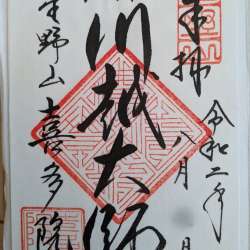 奉拝
令和二年八月 日
川越大師
星野山喜多院